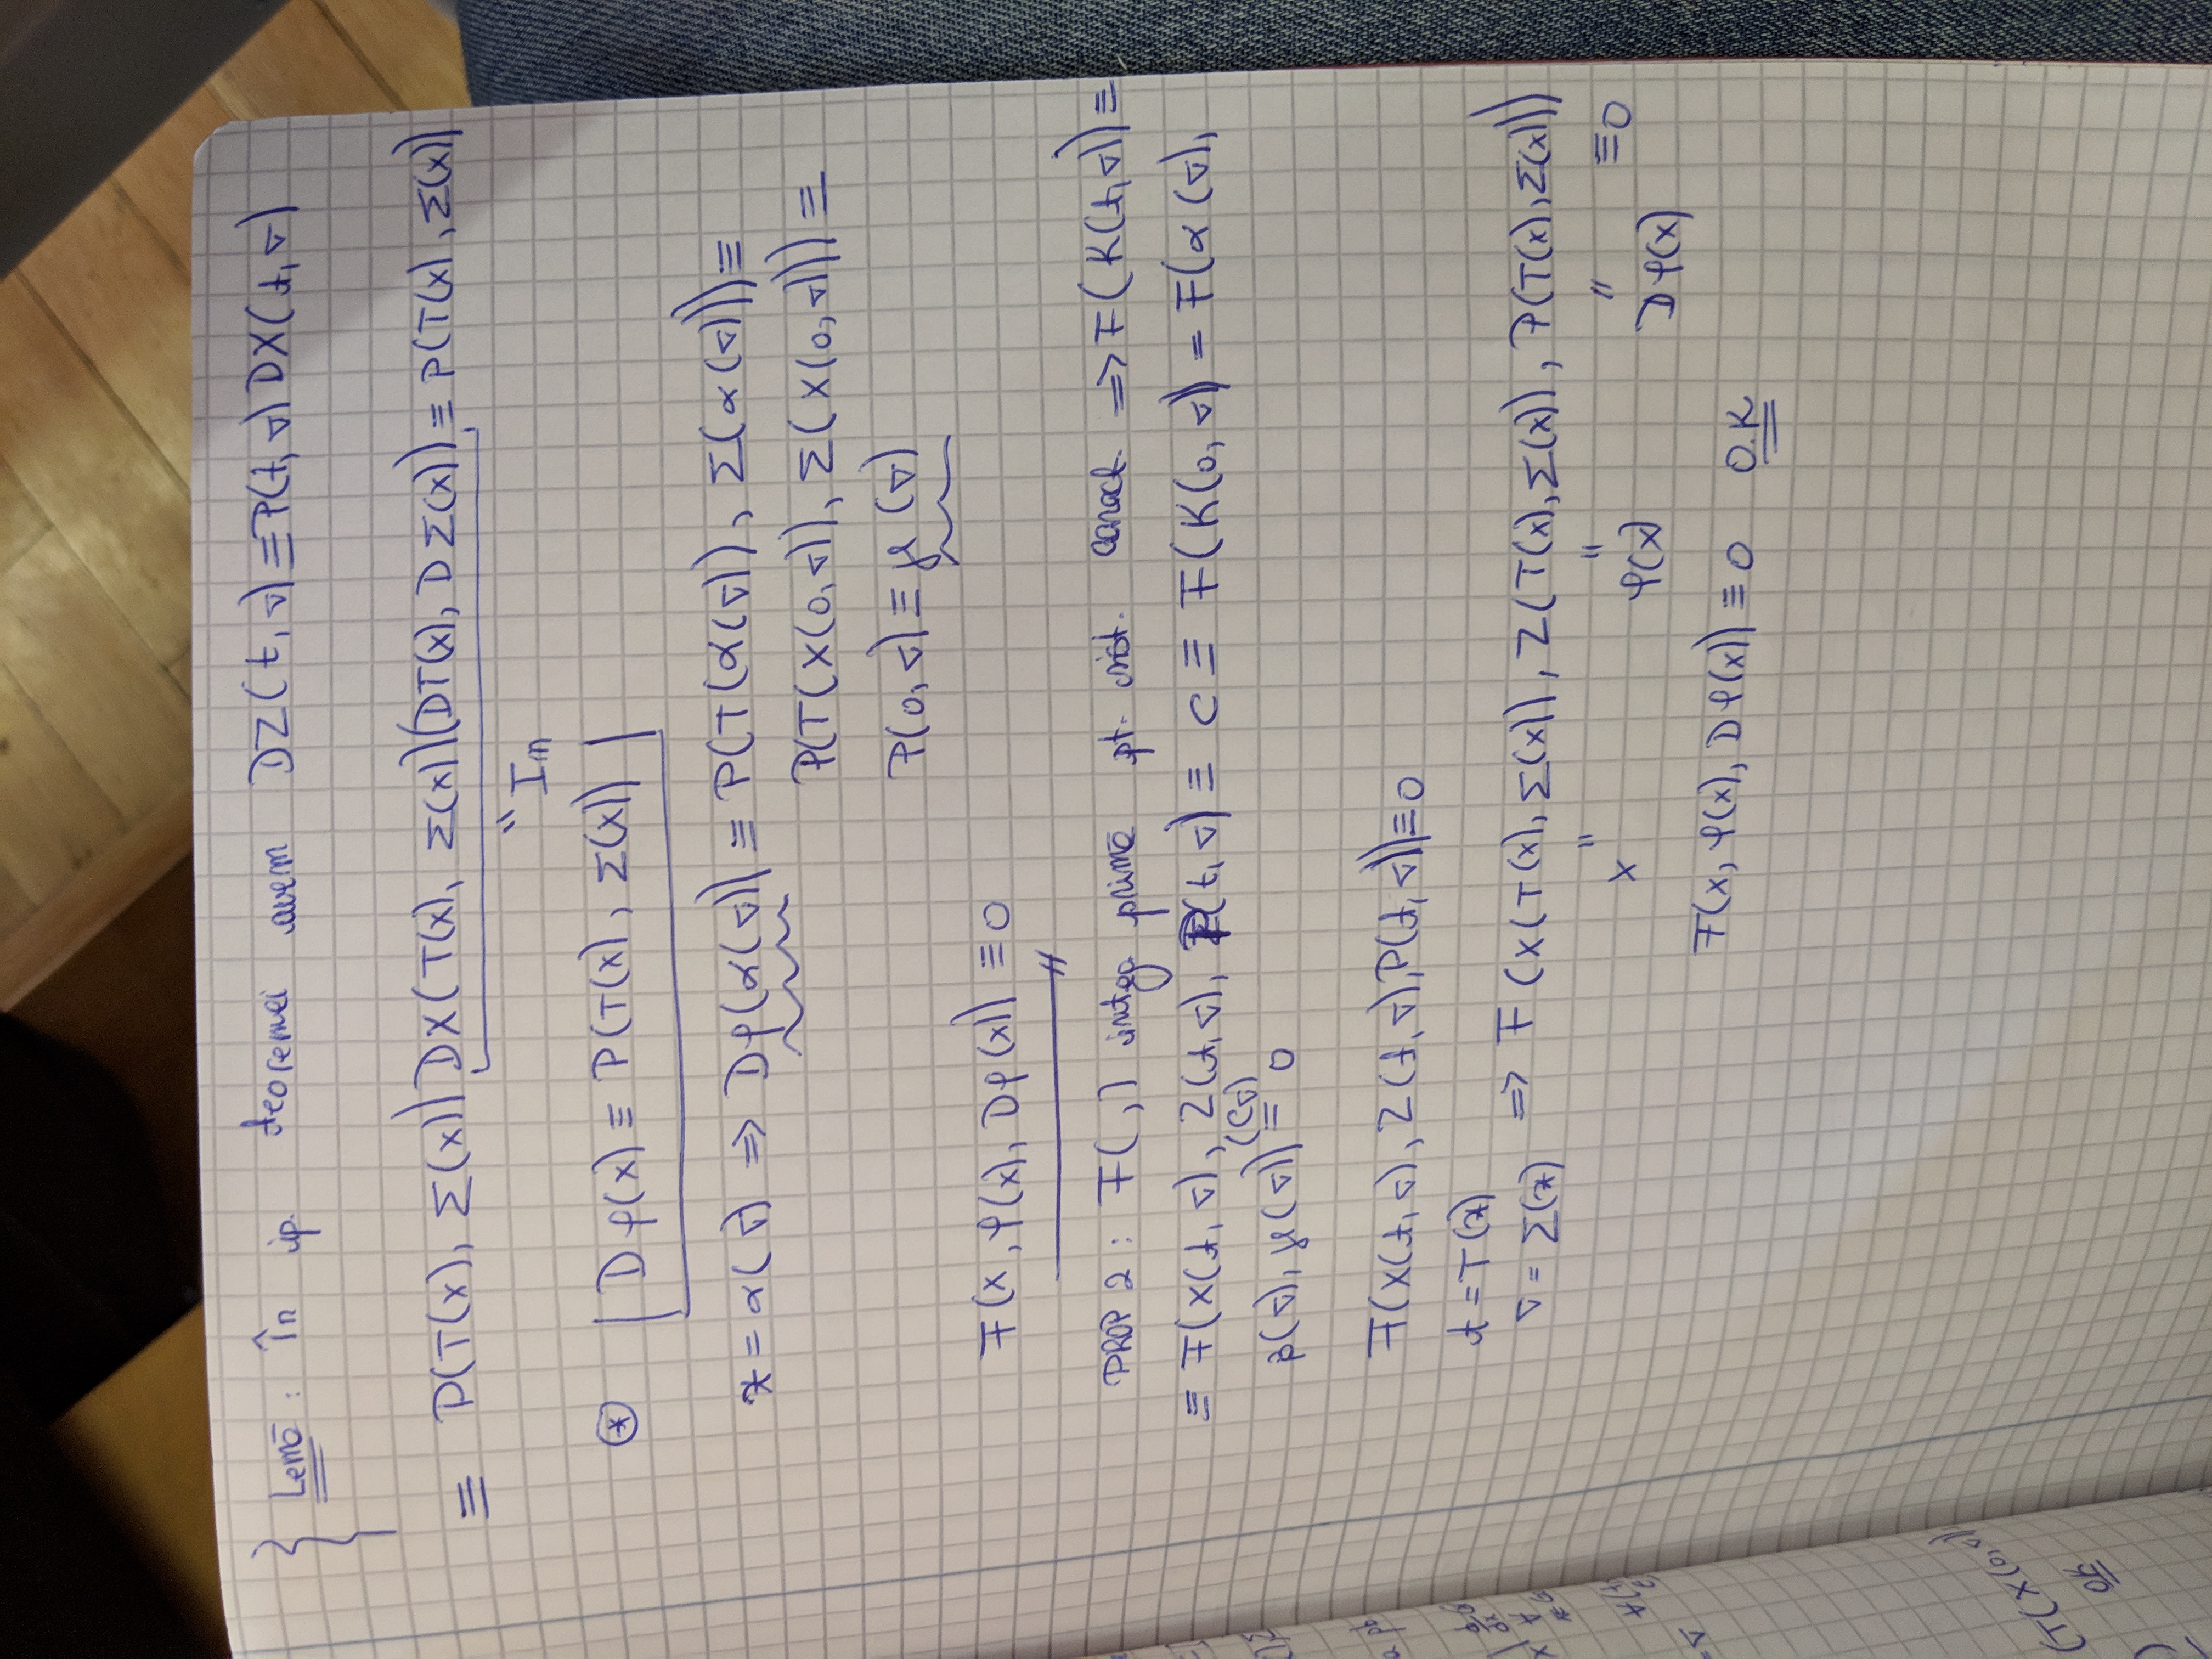 Lemă : În ip. teoremei avem DZ(t, σ) ≡ P(t, σ) DX(t, σ)
≡ P(T(x), Σ(x)) DX(T(x), Σ(x))(DT(x), DΣ(x)) ≡ P(T(x), Σ(x))
" In
⊛ Dφ(x) ≡ P(T(x), Σ(x))
x = α(σ) ⇒ Dφ(α(σ)) ≡ P(T(α(σ)), Σ(α(σ))) ≡
P(T(X(0,σ)), Σ(X(0,σ))) ≡
P(0, σ) ≡ γ(σ)
F(x, φ(x), Dφ(x)) ≡ 0
PROP 2 : F(,) integ primă pt. sist. caract. ⇒ F(K(t,σ)) ≡
≡ F(X(t, σ), Z(t, σ), P(t, σ) ≡ C ≡ F(K(0, σ)) = F(α(σ),
β(σ), γ(σ)) (Cσ) ≡ 0
F(X(t, σ), Z(t, σ), P(t, σ)) ≡ 0
t = T(x)
σ = Σ(x) ⇒ F(X(T(x), Σ(x)), Z(T(x), Σ(x)), P(T(x), Σ(x)))
" " " ≡ 0
x φ(x) Dφ(x)
F(x, φ(x), Dφ(x)) ≡ 0 O.K
a pb
d
dx
∀
(T(X(0, σ)
OK